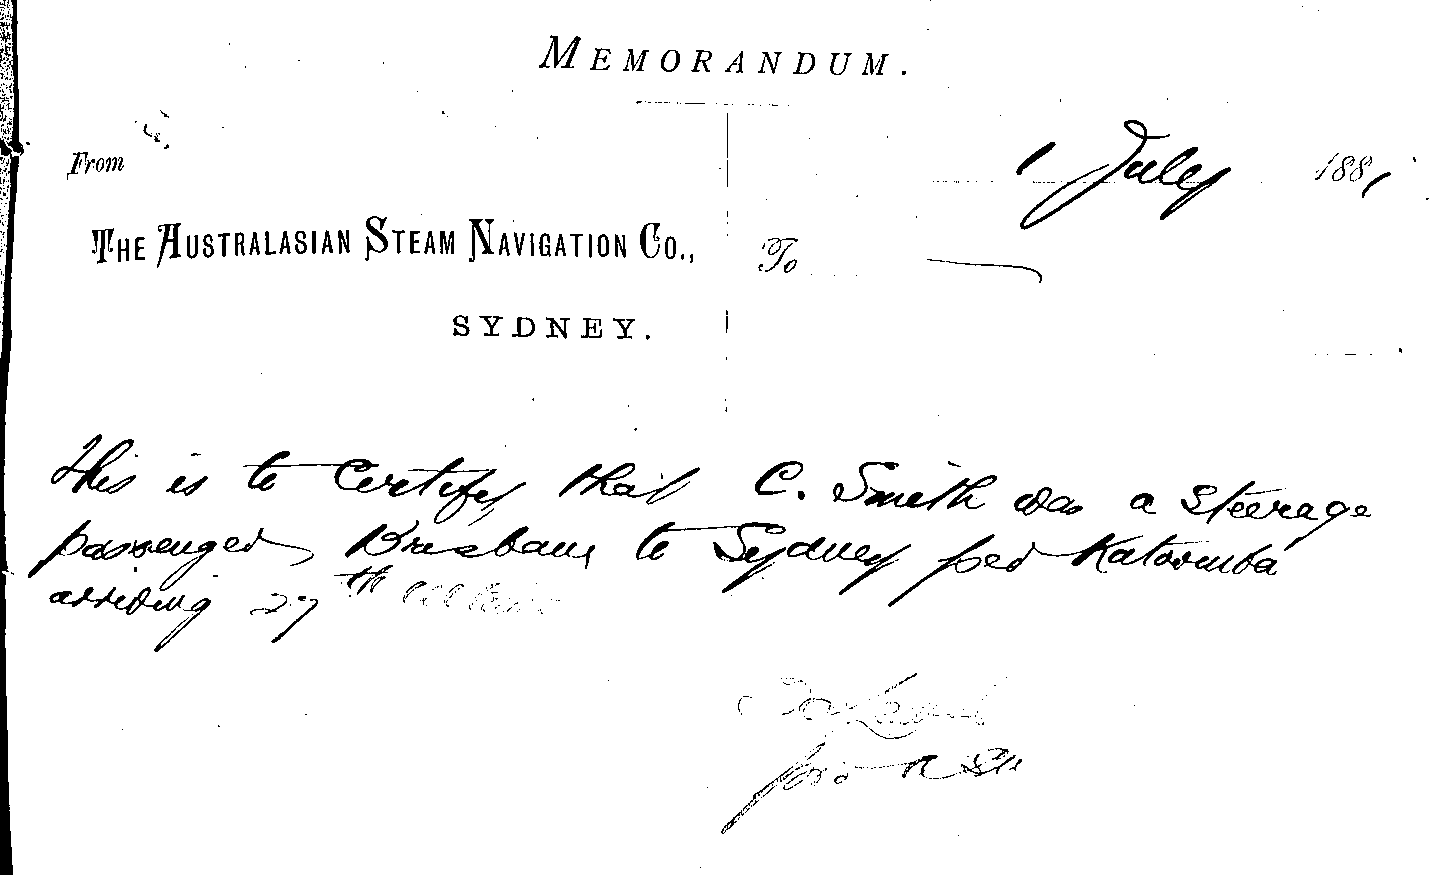 MEMORANDUM.
From
1 July 1881
THE AUSTRALASIAN STEAM NAVIGATION CO.,
To
SYDNEY.
This is to Certify that C. Smith was a Steerage
passenger Brisbane to Sydney per Katoomba
arriving 27th ultimo